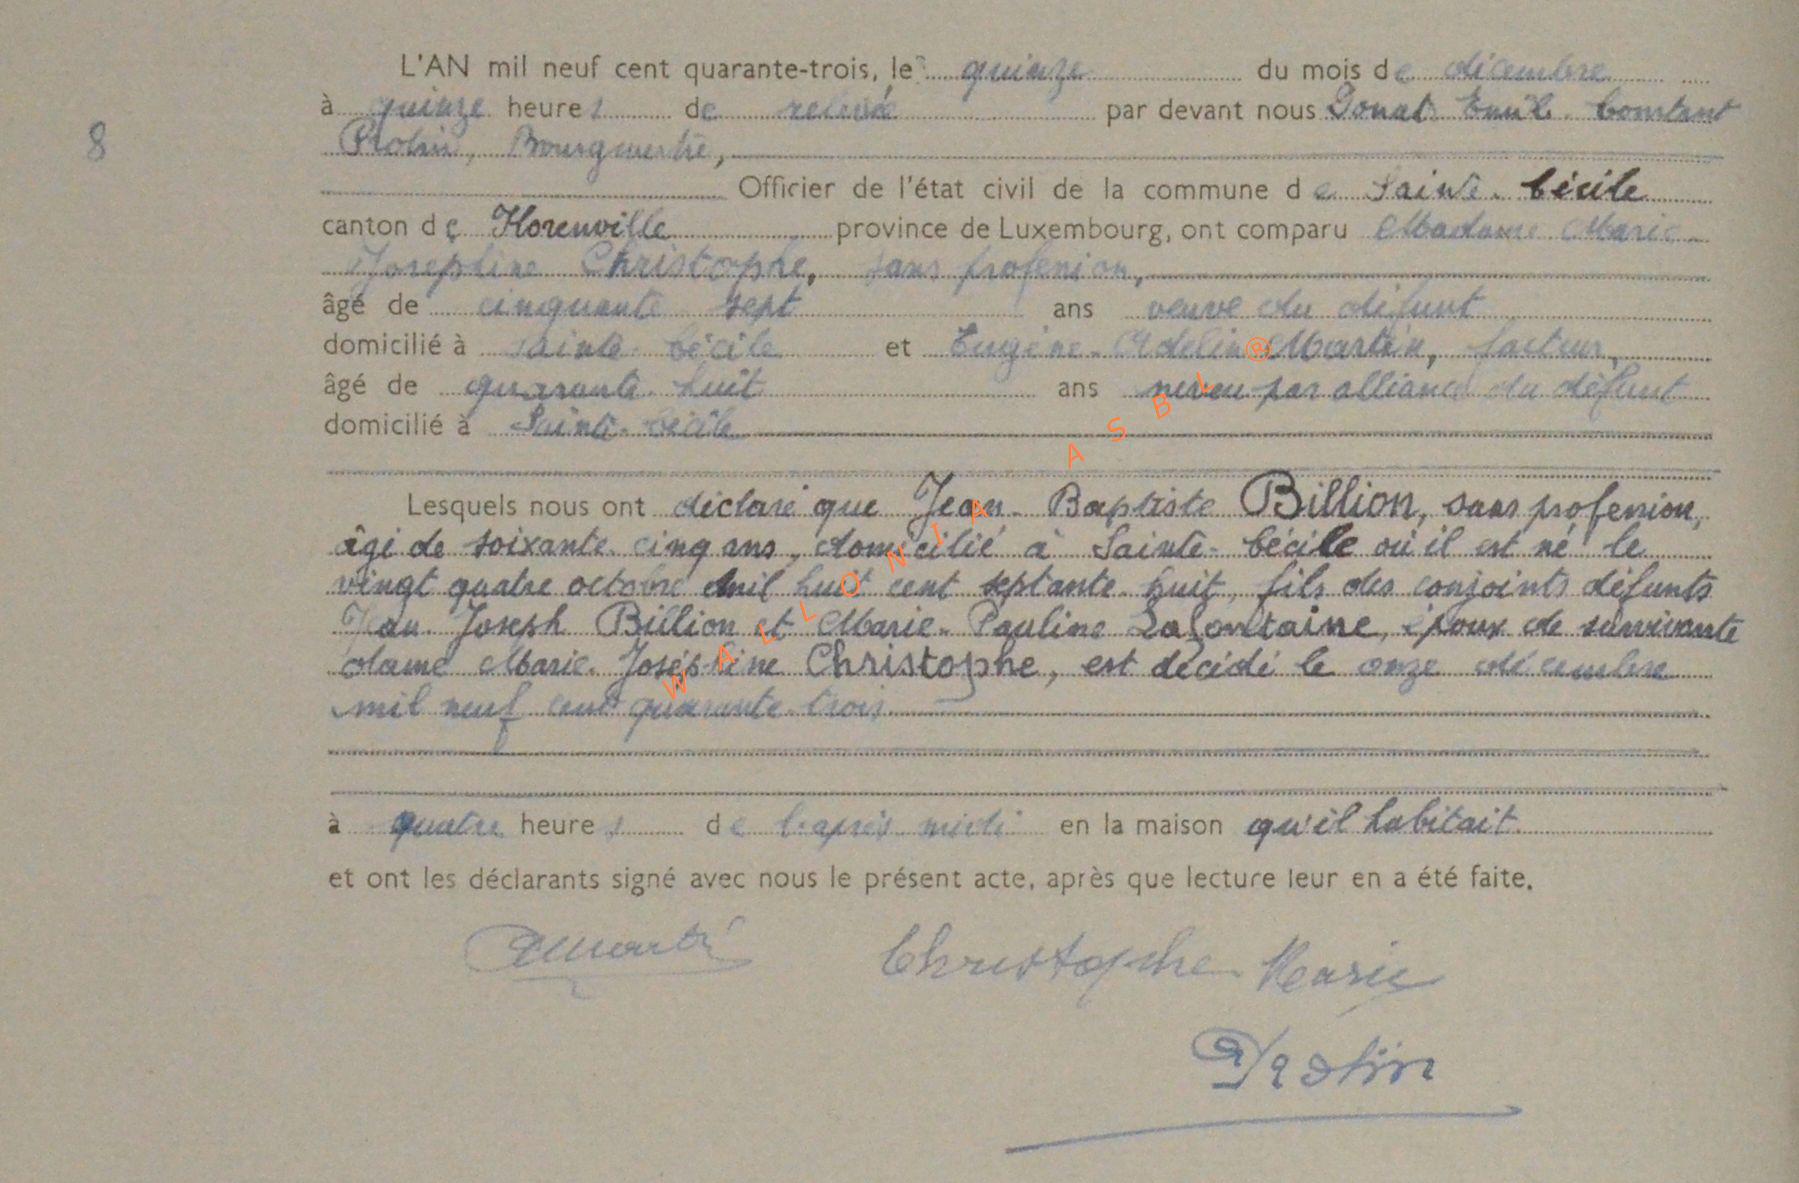 L'AN mil neuf cent quarante-trois, le quinze du mois de décembre
à quinze heures de relevée par devant nous Donat Emile Constant
8
Protin, Bourgmestre,
Officier de l'état civil de la commune de Sainte-Cécile
canton de Florenville province de Luxembourg, ont comparu Madame Marie-
Joséphine Christophe, sans profession,
âgé de cinquante sept ans veuve du défunt
domicilié à Sainte-Cécile et Eugène-Adelin Martin, facteur,
âgé de quarante-huit ans neveu par alliance du défunt
domicilié à Sainte-Cécile
Lesquels nous ont déclaré que Jean-Baptiste Billion, sans profession,
âgé de soixante-cinq ans, domicilié à Sainte-Cécile où il est né le
vingt quatre octobre mil huit cent septante-huit, fils des conjoints défunts
Jean-Joseph Billion et Marie-Pauline Lafontaine, époux de survivante
dame Marie-Joséphine Christophe, est décédé le onze décembre
mil neuf cent quarante-trois
à quatre heures de l'après-midi en la maison qu'il habitait
et ont les déclarants signé avec nous le présent acte, après que lecture leur en a été faite.
Christophe-Marie
WALLONIA ASBL ®